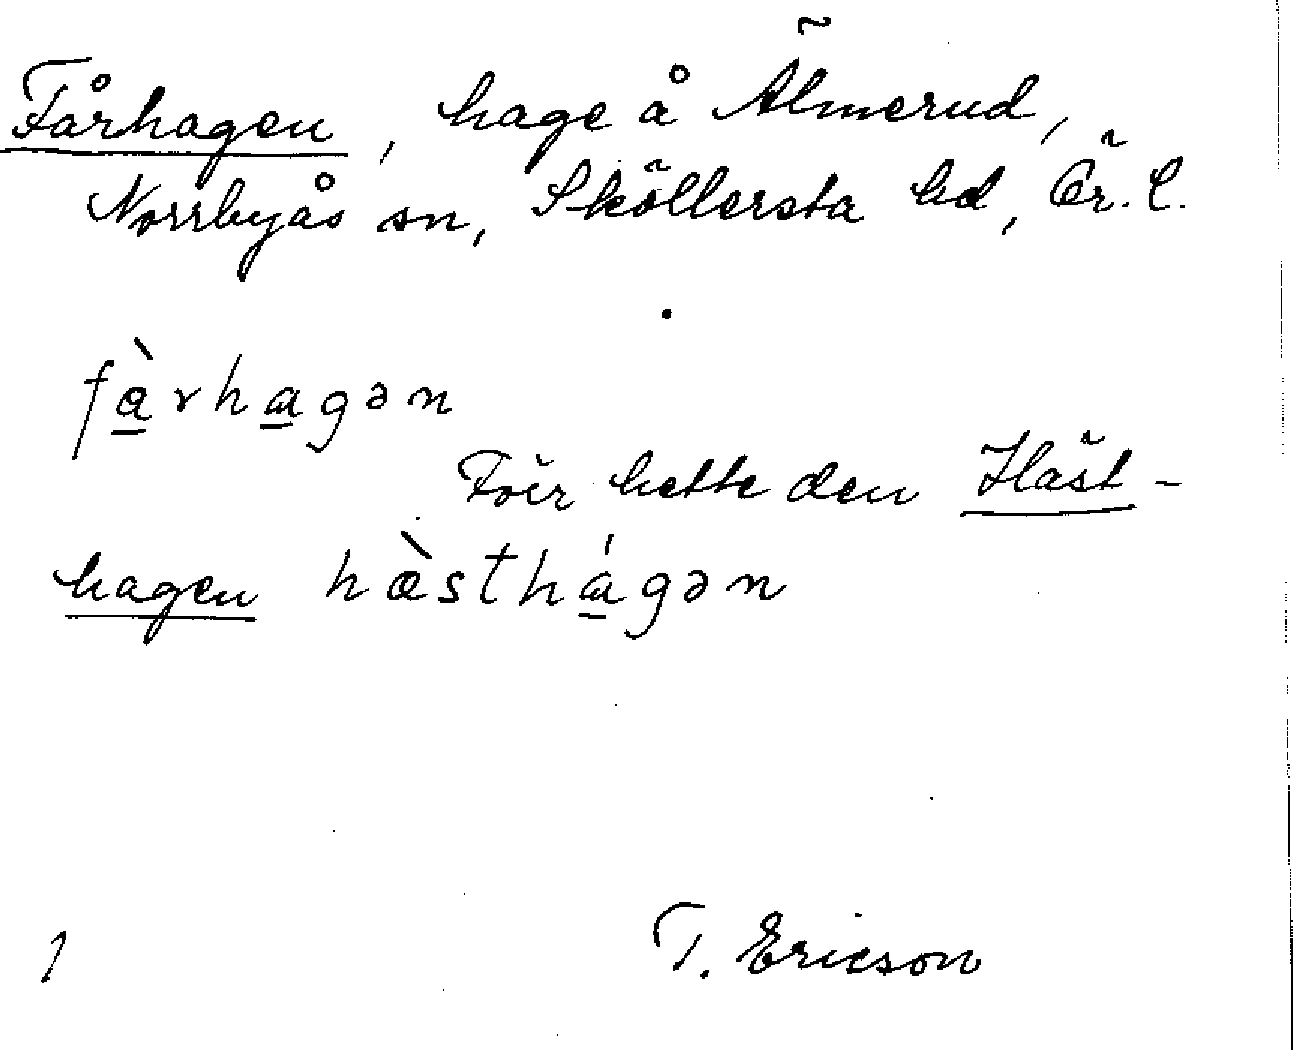 Fårhagen, hage å Älmerud,
Norrbyås sn, Sköllersta hd, Ör. l.
fàrhagən
Förr hette den Häst-
hagen hæ̀sthágən
1 T. Ericson